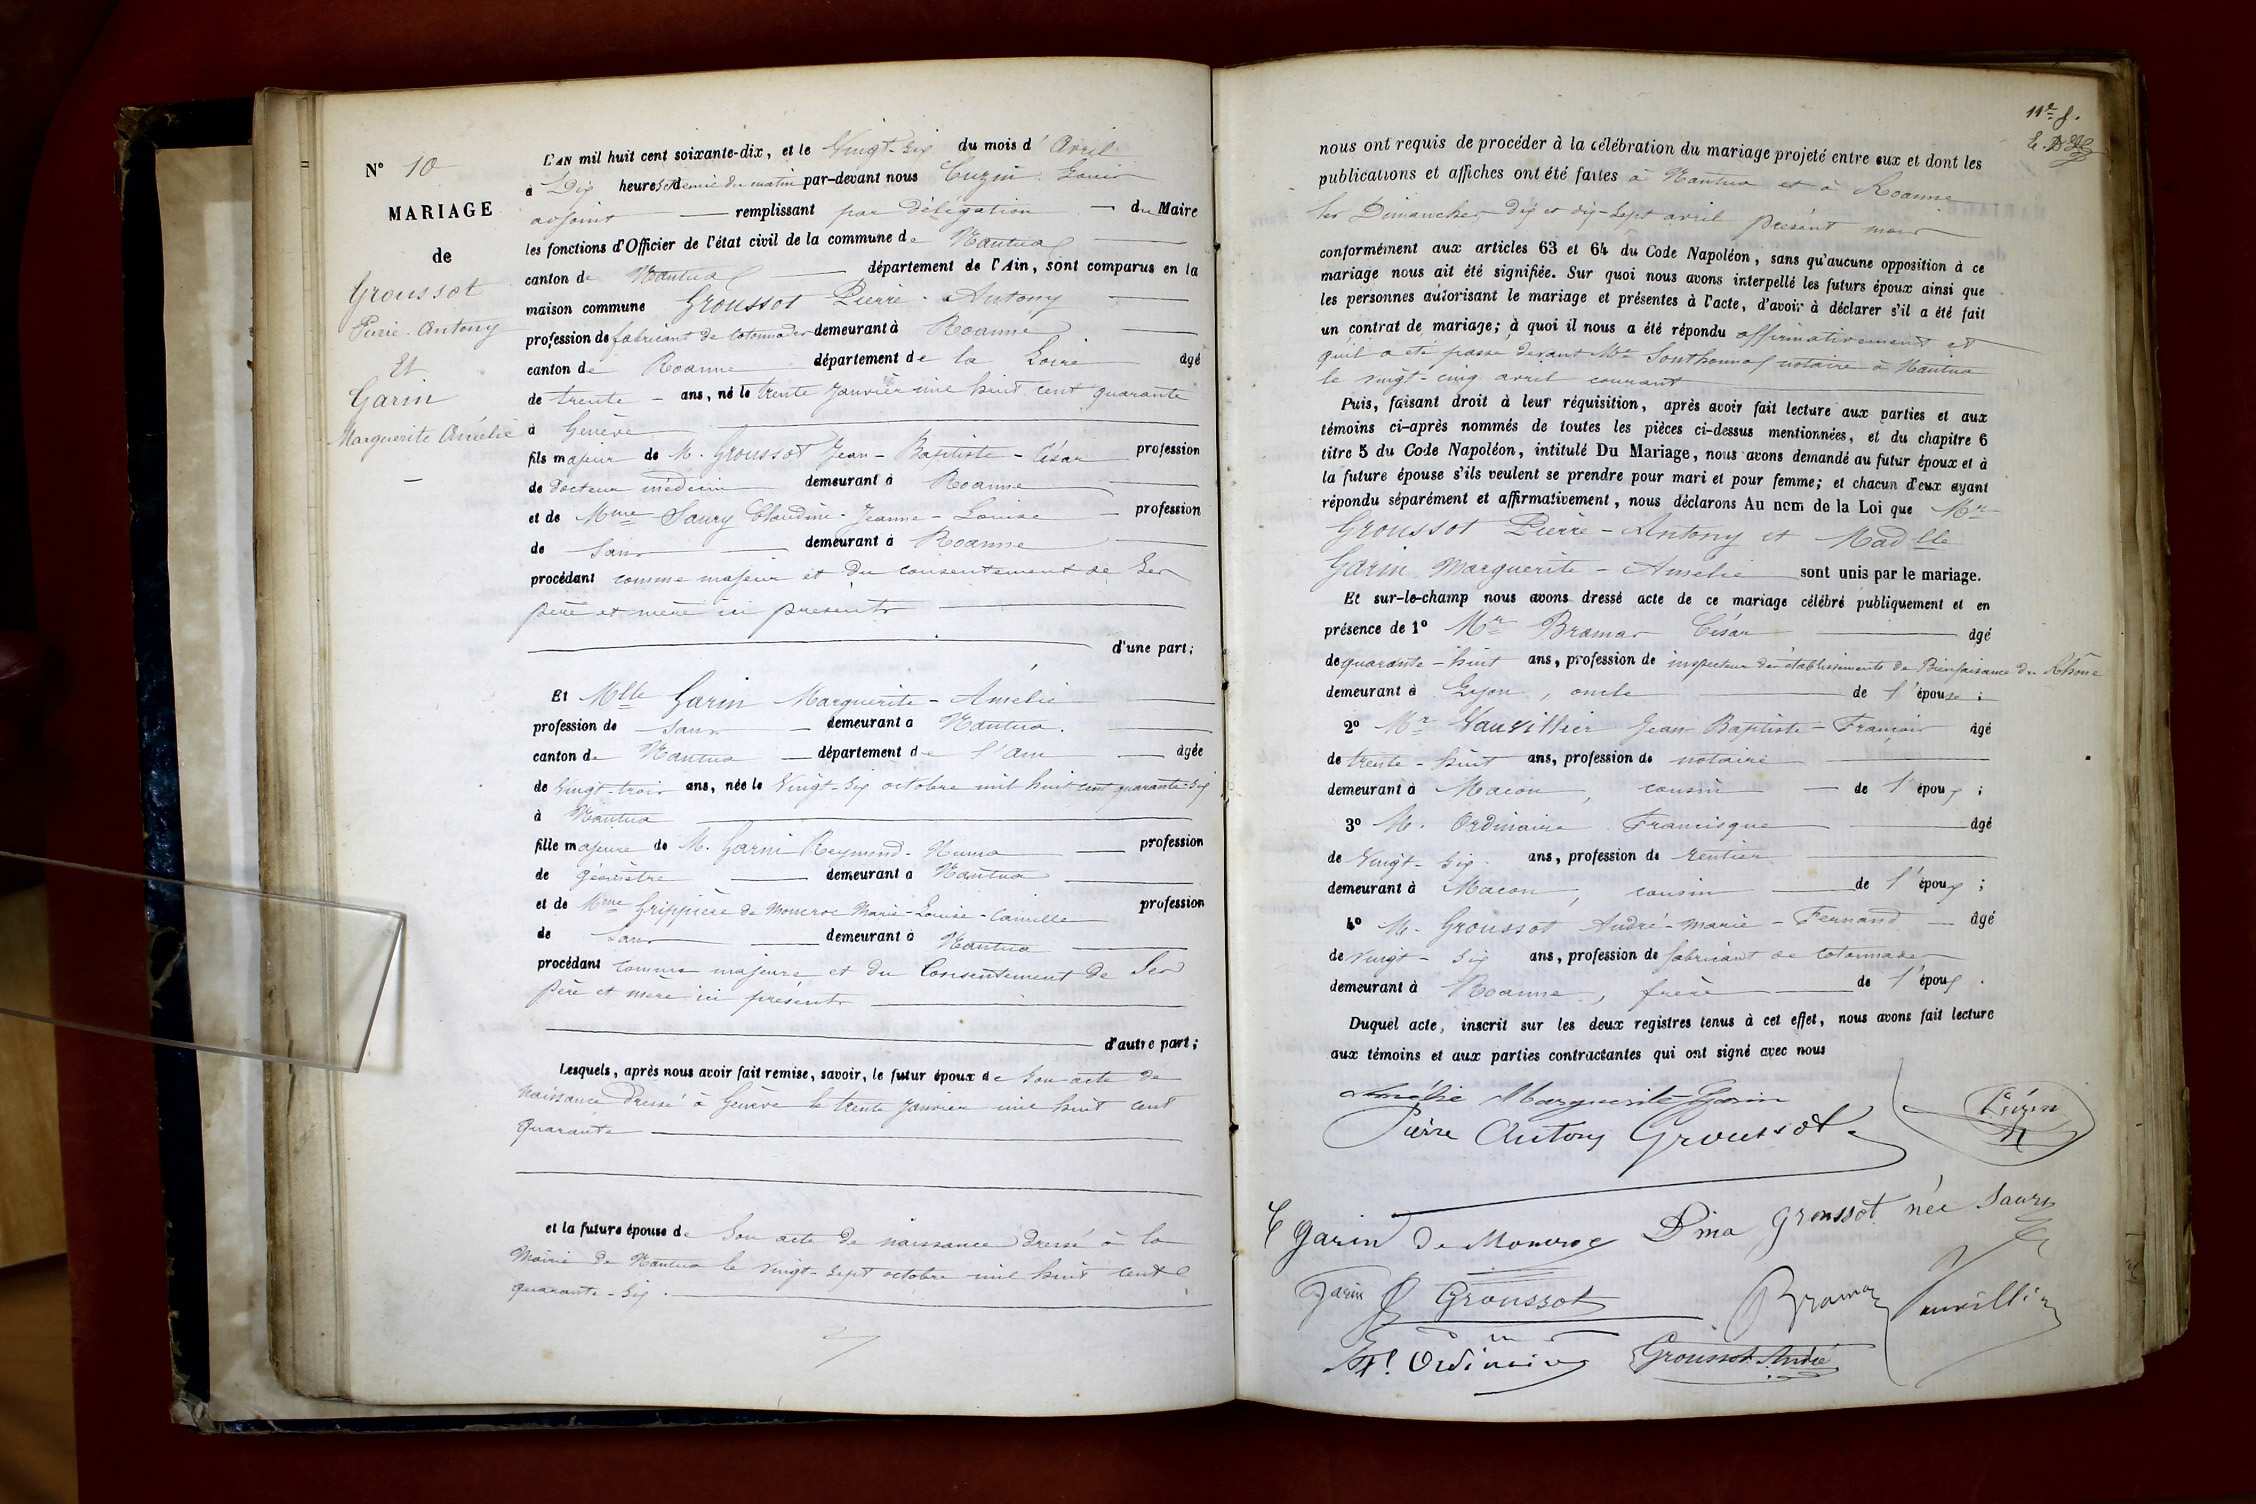 N° 10
MARIAGE
de
Groussot
Pierre-Antony
Et
Garin
Marguerite Amélie
L'AN mil huit cent soixante-dix, et le Vingt-six du mois d'Avril
à Dix heures et demie du matin par-devant nous Cuzin Louis
adjoint remplissant par délégation du Maire
les fonctions d'Officier de l'état civil de la commune de Nantua
canton de Nantua département de l'Ain, sont comparus en la
maison commune Groussot Pierre-Antony
profession de fabricant de cotonnades demeurant à Roanne
canton de Roanne département de la Loire âgé
de trente ans, né le trente Janvier mil huit cent quarante
à Genève
fils majeur de M. Groussot Jean-Baptiste-César profession
de Docteur médecin demeurant à Roanne
et de Mme Saury Claudine-Jeanne-Louise profession
de sans demeurant à Roanne
procédant comme majeur et du consentement de ses
père et mère ici présents
d'une part;
Et Mlle Garin Marguerite-Amélie
profession de sans demeurant à Nantua.
canton de Nantua département de l'Ain âgée
de vingt-trois ans, née le Vingt-six octobre mil huit cent quarante-six
à Nantua
fille majeure de M. Garin Reymond-Numa profession
de géomètre demeurant à Nantua
et de Mme Grippière de Moncroc Marie-Louise-Camille profession
de sans demeurant à Nantua
procédant comme majeure et du Consentement de Ses
père et mère ici présents
d'autre part;
Lesquels, après nous avoir fait remise, savoir, le futur époux de son acte de
naissance dressé à Genève le trente Janvier mil huit cent
quarante
et la future épouse de son acte de naissance dressé à la
Mairie de Nantua le vingt-sept octobre mil huit cent
quarante-six.
11e f.
nous ont requis de procéder à la célébration du mariage projeté entre eux et dont les
publications et affiches ont été faites à Nantua et à Roanne
les Dimanches dix et dix-sept avril présent mois
conformément aux articles 63 et 64 du Code Napoléon, sans qu'aucune opposition à ce
mariage nous ait été signifiée. Sur quoi nous avons interpellé les futurs époux ainsi que
les personnes autorisant le mariage et présentes à l'acte, d'avoir à déclarer s'il a été fait
un contrat de mariage; à quoi il nous a été répondu affirmativement et
qu'il a été passé devant Me Southonnax notaire à Nantua
le vingt-cinq avril courant
Puis, faisant droit à leur réquisition, après avoir fait lecture aux parties et aux
témoins ci-après nommés de toutes les pièces ci-dessus mentionnées, et du chapitre 6
titre 5 du Code Napoléon, intitulé Du Mariage, nous avons demandé au futur époux et à
la future épouse s'ils veulent se prendre pour mari et pour femme; et chacun d'eux ayant
répondu séparément et affirmativement, nous déclarons Au nom de la Loi que Mr
Groussot Pierre-Antony et Madlle
Garin Marguerite-Amélie sont unis par le mariage.
Et sur-le-champ nous avons dressé acte de ce mariage célébré publiquement et en
présence de 1° Mr Bramas César âgé
de quarante-huit ans, profession de inspecteur des établissements de Bienfaisance du Rhône
demeurant à Lyon, oncle de l'épouse;
2° Mr Vauvillier Jean Baptiste-François âgé
de trente-huit ans, profession de notaire
demeurant à Macon, cousin de l'époux;
3° M. Ordinaire Francisque âgé
de Vingt-six ans, profession de rentier
demeurant à Macon, cousin de l'époux;
4° M. Groussot André-Marie-Fernand âgé
de vingt-six ans, profession de fabricant de cotonnades
demeurant à Roanne, frère de l'époux.
Duquel acte, inscrit sur les deux registres tenus à cet effet, nous avons fait lecture
aux témoins et aux parties contractantes qui ont signé avec nous
Amélie Marguerite Garin
Pierre Antony Groussot
Cuzin
C Garin de Moncroc
Dina Groussot née Saury
Garin
Groussot
Bramas
Vauvillier
F. Ordinaire
Groussot André